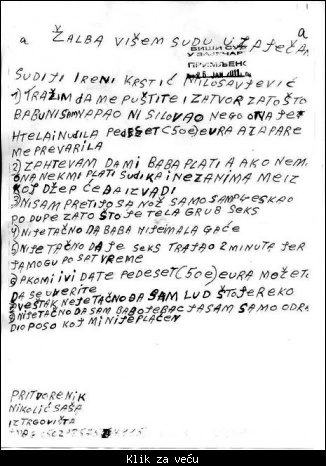 a
a ŽALBA VIŠEM SUDU U ZAJEČAR
ВИШИ СУД
ПРИМЉЕНО
SUDIJI IRENI KRSTIĆ MILOSAVJEVIĆ
1) TRAŽIM DA ME PUŠTITE IZ ATVOR ZATO ŠTO
BABU NISAM NAPAO NI SILOVAO NEGO ONA JE
HTELA I NUDILA PEDESET (50e) EURA A ZA PARE
ME PREVARILA
2) ZAHTEVAM DA MI BABA PLATI A AKO NEM.
ONA NEK MI PLATI SUDIKA I NEZANIMA ME IZ
KOJ DŽEP ĆE DA IZVADI
3) NISAM PRETIJO SA NOŽ SAMO SAM PLJESKAO
PO DUPE ZATO ŠTO JE TELA GRUB SEKS
4) NIJE TAČNO DA BABA NIJE IMALA GAĆE
5) NIJE TAČNO DA JE SEKS TRAJAO 2 MINUTA JER
JA MOGU PO SAT VREME
6) AKO MI I VI DATE PEDESET (50e) EURA MOŽETE
DA SE UVERITE
VEŠTAK NEJE TAČNO DA SAM LUD ŠTO JE REKO
NIJE TAČNO DA SAM BABOJEBAC JA SAM SAMO ODRA
DIO POSO KOJ MI NIJE PLAĆEN
PRITVORENIK
NIKOLIĆ SAŠA
IZ TRGOVIŠTA
Klik za veću